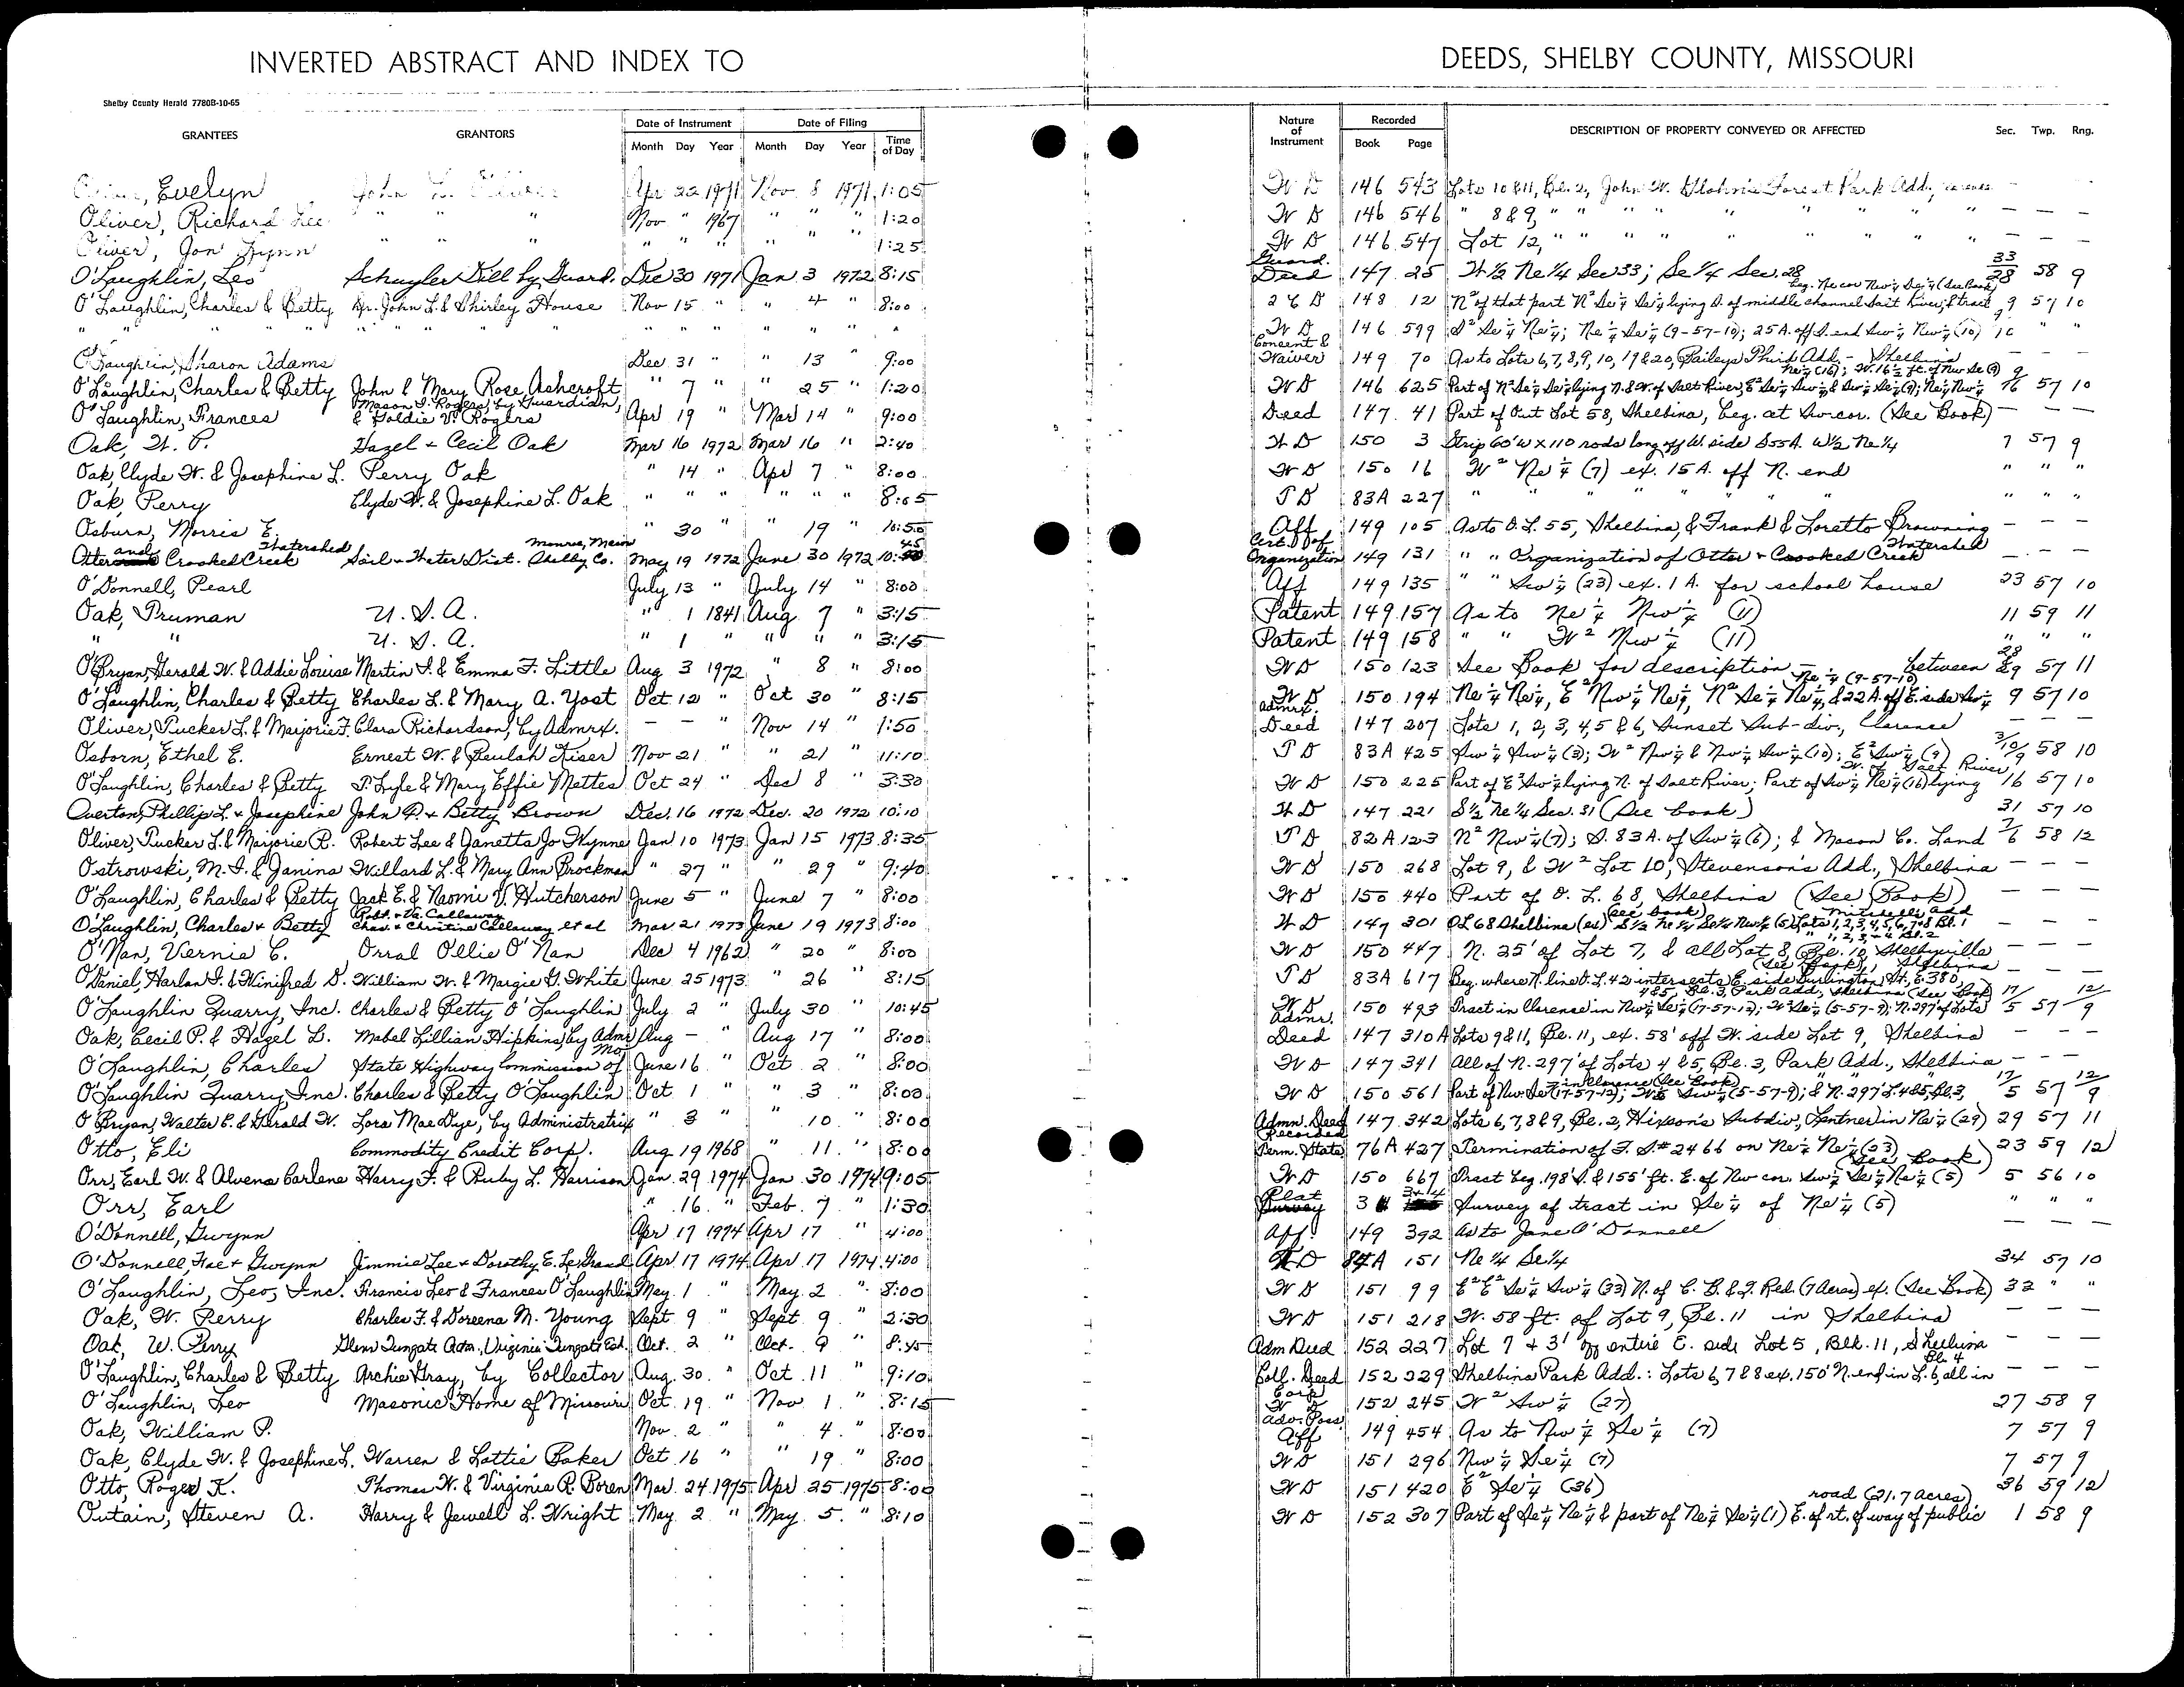 INVERTED ABSTRACT AND INDEX TO DEEDS, SHELBY COUNTY, MISSOURI
Shelby County Herald 7780B-10-65
GRANTEES GRANTORS Date of Instrument Month Day Year Date of Filing Month Day Year Time of Day Nature of Instrument Recorded Book Page DESCRIPTION OF PROPERTY CONVEYED OR AFFECTED Sec. Twp. Rng.
Evelyn John L. Oliver Apr 22 1971 Nov. 8 1971 1:05 W D 146 543 Lots 10 & 11, Bl. 2, John W. Forest Park Add., — —
Oliver, Richard Lee " " " Nov " 1967 " " " 1:20 W D 146 546 " 8 & 9, " " " " " " " " — — —
Oliver, Jon Lynn " " " " " " " " 1:25 W D 146 547 Lot 12, " " " " " " " " — — —
O'Laughlin, Leo Schuyler Dill by Guard. Dec 30 1971 Jan 3 1972 8:15 Guard. Deed 147 25 W 1/2 Ne 1/4 Sec 33; Se 1/4 Sec. 28 33/28 58 9
O'Laughlin, Charles & Betty Dr. John L. & Shirley House Nov 15 " " 4 " 8:00 2 C D 148 12 N² of that part N² Se¼ Se¼ lying S. of middle channel Salt River, & tract beg. Ne cor Nw¼ Se¼ (See Book) 9 57 10
" " " " " " " " " " " " " " W D 146 599 S² Se¼ Ne¼; Ne¼ Se¼ (9-57-10); 25 A. off S. end Sw¼ Nw¼ (10) 9/10 " "
O'Laughlin, Sharon Adams Dec 31 " " 13 " 9:00 Consent & Waiver 149 70 As to Lots 6, 7, 8, 9, 10, 19 & 20, Baileys Third Add. - Shelbina — — —
O'Laughlin, Charles & Betty John & Mary Rose Ashcroft " 7 " " 25 " 1:20 W D 146 625 Part of N² Se¼ Se¼ lying N. & W. of Salt River, E² Se¼ Sw¼ & Sw¼ Se¼ (9); Ne¼ Nw¼ Nw¼ (16); W. 16½ ft. of Nw Se (9) 9/16 57 10
O'Laughlin, Frances Mason J. Rogers, by Guardian, & Goldie V. Rogers Apr 19 " Mar 14 " 9:00 Deed 147 41 Part of Out Lot 58, Shelbina, beg. at Sw cor. (See Book) — — —
Oak, W. P. Hazel + Cecil Oak Mar 16 1972 Mar 16 " 2:40 W D 150 3 Strip 60' W x 110 rods long off W. side S 55 A. W 1/2 Ne 1/4 7 57 9
Oak, Clyde W. & Josephine L. Perry Oak " 14 " Apr 7 " 8:00 W D 150 16 W² Ne¼ (7) ex. 15 A. off N. end " " "
Oak, Perry Clyde W. & Josephine L. Oak " " " " " " 8:05 T D 83A 227 " " " " " " " " " "
Osburn, Morris E. " 30 " " 19 " 10:50 Aff 149 105 As to O. L. 55, Shelbina, & Frank & Loretto Browning — — —
Otter and Crooked Creek Watershed Soil + Water Dist. Shelby Co. Monroe, Macon May 19 1972 June 30 1972 10:45 Cert. of Organization 149 131 " " Organization of Otter + Crooked Creek Watershed — — —
O'Donnell, Pearl July 13 " July 14 " 8:00 Aff 149 135 " " Sw¼ (23) ex. 1 A. for school house 23 57 10
Oak, Truman U. S. A. " 1 1841 Aug. 7 " 3:15 Patent 149 157 As to Ne¼ Nw¼ (11) 11 59 11
" " U. S. A. " 1 " " " " 3:15 Patent 149 158 " " W² Nw¼ (11) " " "
O'Bryan, Gerald W. & Addie Louise Martin T. & Emma F. Little Aug 3 1972 " 8 " 8:00 W D 150 123 See Book for description — between 28/29 57 11
O'Laughlin, Charles & Betty Charles L. & Mary A. Yost Oct 12 " Oct 30 " 8:15 W D 150 194 Ne¼ Ne¼, E² Nw¼ Ne¼, N² Se¼ Ne¼, & 22 A. off E. side Sw¼ Ne¼ (9-57-10) 9 57 10
Oliver, Tucker L. & Marjorie F. Clara Richardson, by Admrx. — — " Nov 14 " 1:50 Admrx. Deed 147 207 Lots 1, 2, 3, 4, 5 & 6, Sunset Sub-div, Clarence — — —
Osborn, Ethel E. Ernest W. & Beulah Kiser Nov 21 " " 21 " 11:10 T D 83A 425 Sw¼ Sw¼ (3); W² Nw¼ & Nw¼ Sw¼ (10); E² Sw¼ (9) 3/10/9 58 10
O'Laughlin, Charles & Betty T. Lyle & Mary Effie Mettes Oct 24 " Dec 8 " 3:30 W D 150 225 Part of E² Sw¼ lying N. of Salt River; Part of Sw¼ Ne¼ (16) lying W. of Salt River 16 57 10
Overton, Phillip L. + Josephine John P. + Betty Brown Dec. 16 1972 Dec. 20 1972 10:10 W D 147 221 S½ Ne¼ Sec. 31 (See book) 31 57 10
Oliver, Tucker L. & Marjorie R. Robert Lee & Janetta Jo Wynne Jan 10 1973 Jan 15 1973 8:35 T D 82A 123 N² Nw¼ (7); S. 83 A. of Sw¼ (6); & Macon Co. Land 7/6 58 12
Ostrowski, M. J. & Janina Willard L. & Mary Ann Brockman " 27 " " 29 " 9:40 W D 150 268 Lot 9, & W² Lot 10, Stevenson's Add., Shelbina — — —
O'Laughlin, Charles & Betty Jack E. & Naomi V. Hutcherson June 5 " June 7 " 8:00 W D 150 440 Part of O. L. 68, Shelbina (See Book) — — —
O'Laughlin, Charles + Betty Robt. + Va. Callaway Chas. + Christine Callaway et al Mar 21 1973 June 19 1973 8:00 W D 147 301 OL 68 Shelbina (ex) (See book) S½ Ne¼ Se¼ Nw¼ (5) Lots 1, 2, 3, 4, 5, 6, 7 + 8 Bl. 1 " 1, 2, 3, + 4 Bl. 2 —
O'Nan, Vernie C. Orral Ollie O'Nan Dec 4 1962 " 20 " 8:00 W D 150 447 N. 25' of Lot 7, & all Lot 8, Bl. 10, Shelbyville — — —
O'Daniel, Harlan J. & Winifred D. William W. & Margie G. White June 25 1973 " 26 " 8:15 T D 83A 617 Beg. where N. line O. L. 42 intersects E. side Burlington St., E. 380, (See Book), Shelbina — — —
O'Laughlin Quarry, Inc. Charles & Betty O'Laughlin July 2 " July 30 " 10:45 W D 150 493 Tract in Clarence in Nw¼ Se¼ (17-57-12); W² Sw¼ (5-57-9); N. 297' of Lots 4 & 5, Bl. 3, Park Add., Shelbina (See Book) 17/5 57 12/9
Oak, Cecil P. & Hazel L. Mabel Lillian Hipkins, by Admr Aug — " Aug 17 " 8:00 Admr. Deed 147 310A Lots 9 & 11, Bl. 11, ex. 58' off W. side Lot 9, Shelbina — — —
O'Laughlin, Charles State Highway Commission of Mo June 16 " Oct 2 " 8:00 W D 147 341 All of N. 297' of Lots 4 & 5, Bl. 3, Park Add., Shelbina — — —
O'Laughlin Quarry, Inc. Charles & Betty O'Laughlin Oct 1 " " 3 " 8:00 W D 150 561 Part of Nw Se (17-57-12); in Clarence (See Book) W² Sw¼ (5-57-9); & N. 297' L. 4 & 5, Bl. 3, " 17/5 57 12/9
O'Bryan, Walter E. & Gerald W. Lora Mae Dye, by Administratrix " 3 " " 10 " 8:00 Admn. Deed 147 342 Lots 6, 7, 8 & 9, Bl. 2, Hixson's Subdiv, Lentner in Ne¼ (29) 29 57 11
Otto, Eli Commodity Credit Corp. Aug 19 1968 " 11 " 8:00 Recorded Term. State 76A 427 Termination of F. S. # 2466 on Ne¼ Ne¼ (23) 23 59 12
Orr, Earl W. & Alvena Earlene Harry F. & Ruby L. Harrison Jan. 29 1974 Jan 30 1974 9:05 W D 150 667 Tract beg. 198' S. & 155' ft. E. of Nw cor. Sw¼ Se¼ Ne¼ (5) (See Book) 5 56 10
Orr, Earl " 16 " Feb. 7 " 1:30 Plat 3 Survey of tract in Se¼ of Ne¼ (5) " " "
O'Donnell, Gwynn Apr 17 1974 Apr 17 " 4:00 Aff. 149 392 As to Jane O'Donnell — — —
O'Donnell, Hal + Gwynn Jimmie Lee + Dorothy E. LeGrand Apr 17 1974 Apr 17 1974 4:00 W D 84A 151 Ne ¼ Se ¼ 34 57 10
O'Laughlin, Leo, Inc. Francis Leo & Frances O'Laughlin May 1 " May 2 " 8:00 W D 151 99 E² E² Se¼ Sw¼ (33) N. of C. B. & Q. Rd. (7 Acres) ex. (See Book) 33 " "
Oak, W. Perry Charles F. & Doreena M. Young Sept 9 " Sept 9 " 2:30 W D 151 218 W. 58 ft. of Lot 9, Bl. 11 in Shelbina — — —
Oak, W. Perry Glenn Tungate Adm. Virginia Tungate Est. Oct. 2 " Oct. 9 " 8:45 Adm Deed 152 227 Lot 7 + 3' off entire E. side Lot 5, Blk. 11, Shelbina — — —
O'Laughlin, Charles & Betty Archie Gray, by Collector Aug. 30 " Oct 11 " 9:10 Coll. Deed 152 229 Shelbina Park Add.: Lots 6, 7 & 8 ex. 150' N. end in L. 6, all in Bl. 4 — — —
O'Laughlin, Leo Masonic Home of Missouri Oct 19 " Nov 1 " 8:15 Corp W D 152 245 W² Sw¼ (27) 27 58 9
Oak, William P. Nov. 2 " " 4 " 8:00 Adv. Poss. Aff 149 454 As to Nw¼ Se¼ (7) 7 57 9
Oak, Clyde W. & Josephine L. Warren & Lottie Baker Oct 16 " " 19 " 8:00 W D 151 296 Nw¼ Se¼ (7) 7 57 9
Otto, Roger K. Thomas W. & Virginia P. Boren Mar. 24 1975 Apr 25 1975 8:00 W D 151 420 E² Se¼ (36) 36 59 12
Outain, Steven A. Harry & Jewell L. Wright May 2 " May 5 " 8:10 W D 152 307 Part of Se¼ Ne¼ & part of Ne¼ Se¼ (1) E. of rt. of way of public road (21.7 Acres) 1 58 9